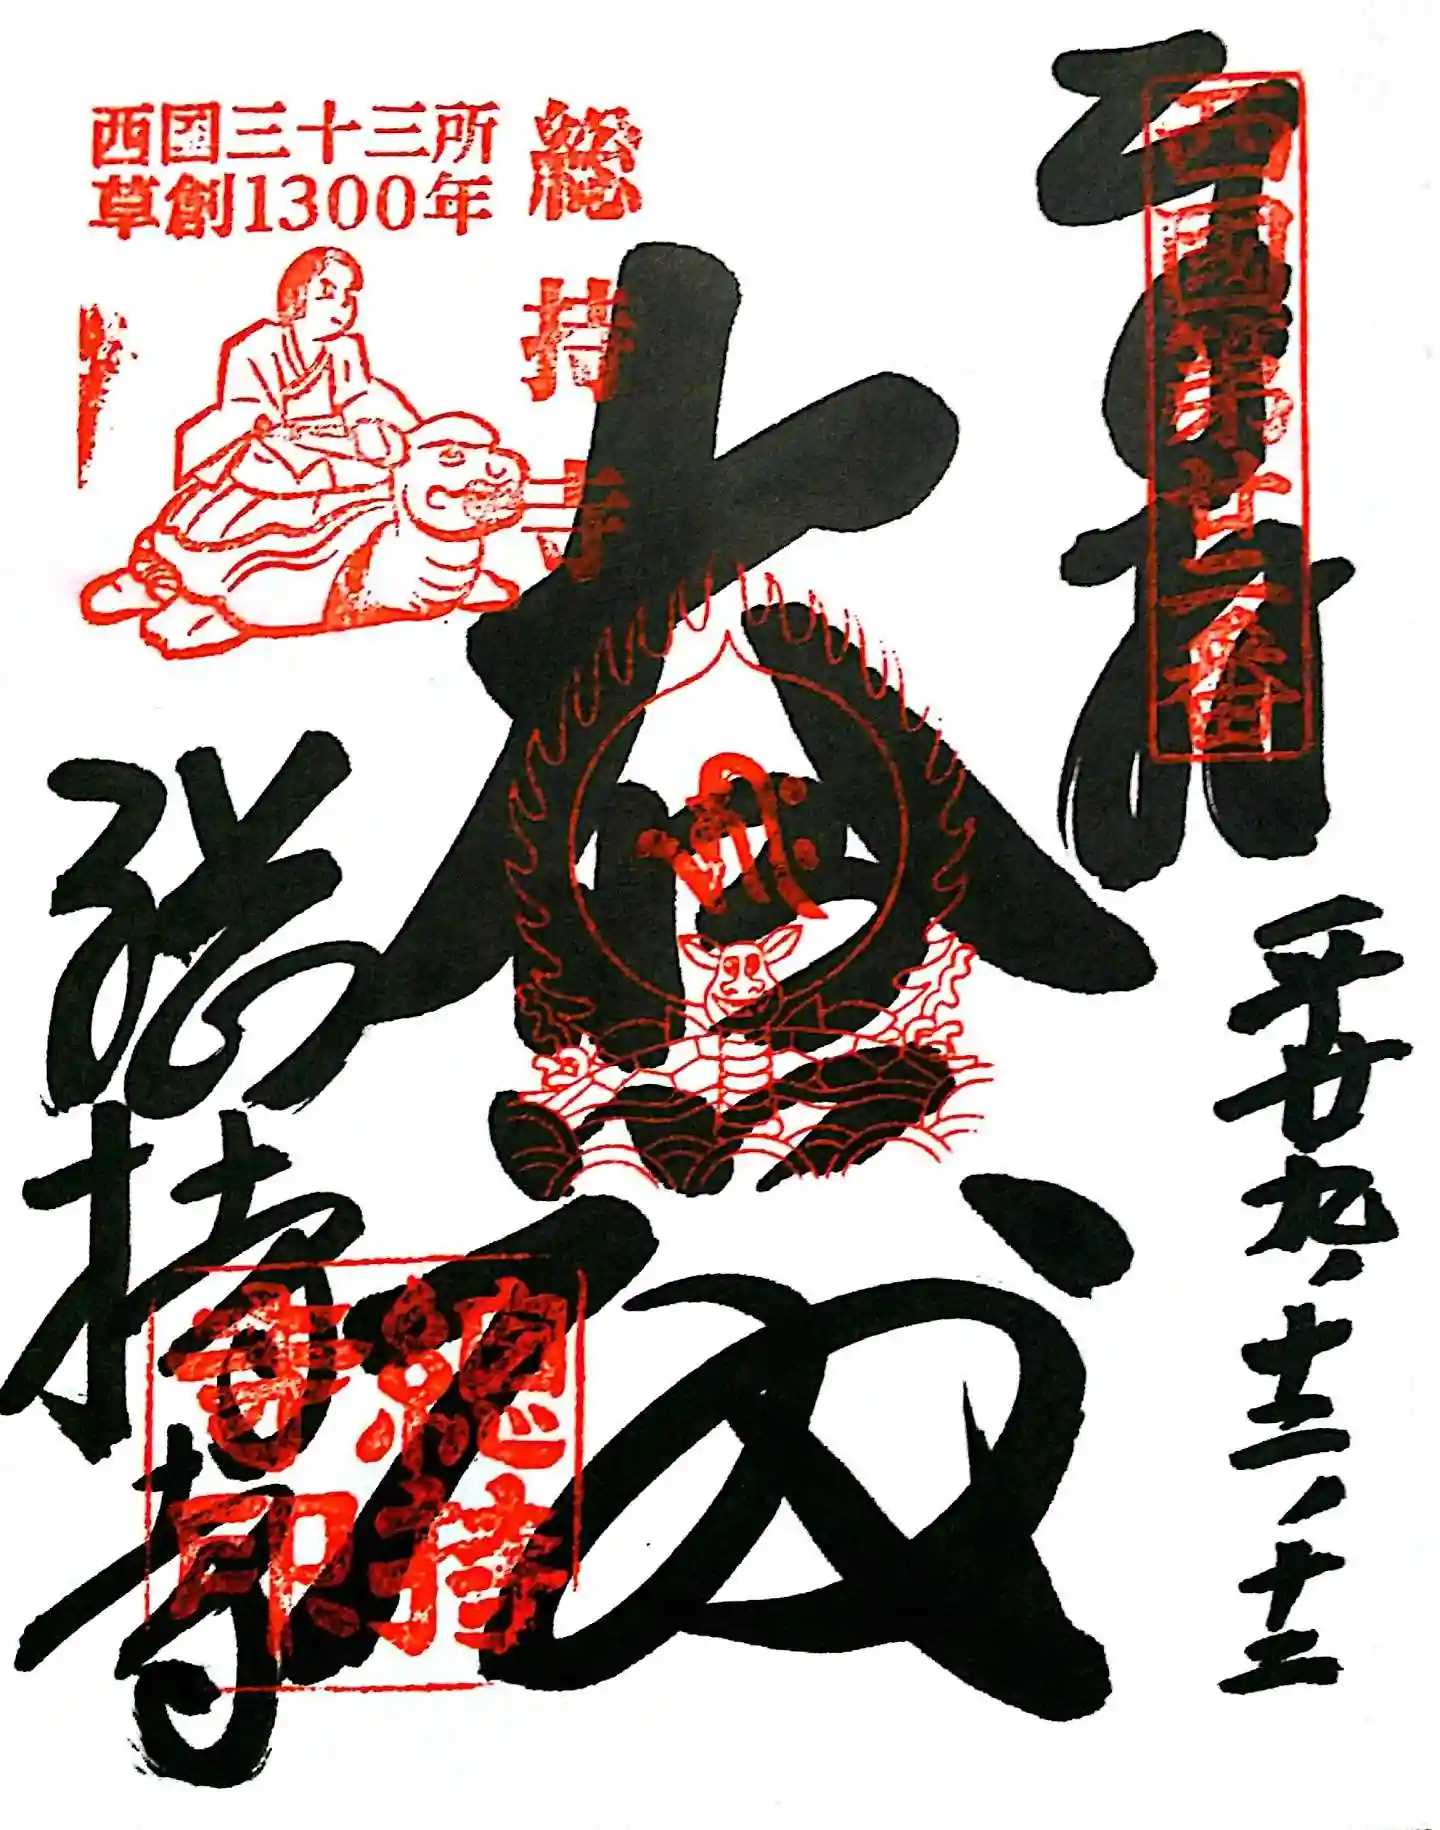 奉拝
西国第廿二番
平廿九、十二、十二
大悲殿
総持寺
西国三十三所
草創1300年
総持寺
総持
寺印